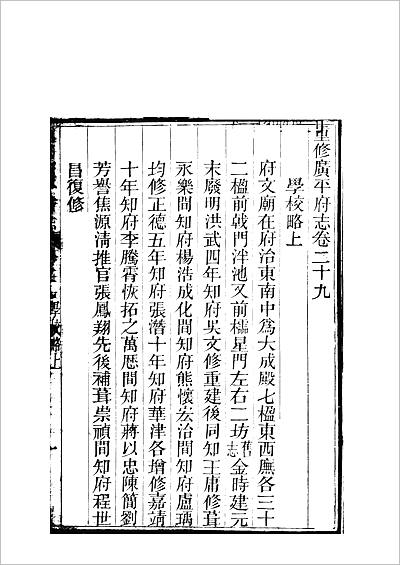 重修廣平府志卷二十九
學校略上
府文廟在府治東南中爲大成殿七楹東西廡各三十
二楹前戟門泮池又前櫺星門左右二坊舊志金時建元
末廢明洪武四年知府吳文修重建後同知王庸修葺
永樂間知府楊浩成化間知府熊懷宏治間知府盧瑀
均修正德五年知府張潛十年知府華津各增修嘉靖
十年知府李騰霄恢拓之萬厯間知府蔣以忠陳簡劉
芳譽焦源淸推官張鳳翔先後補葺崇禎間知府程世
昌復修
學校略上